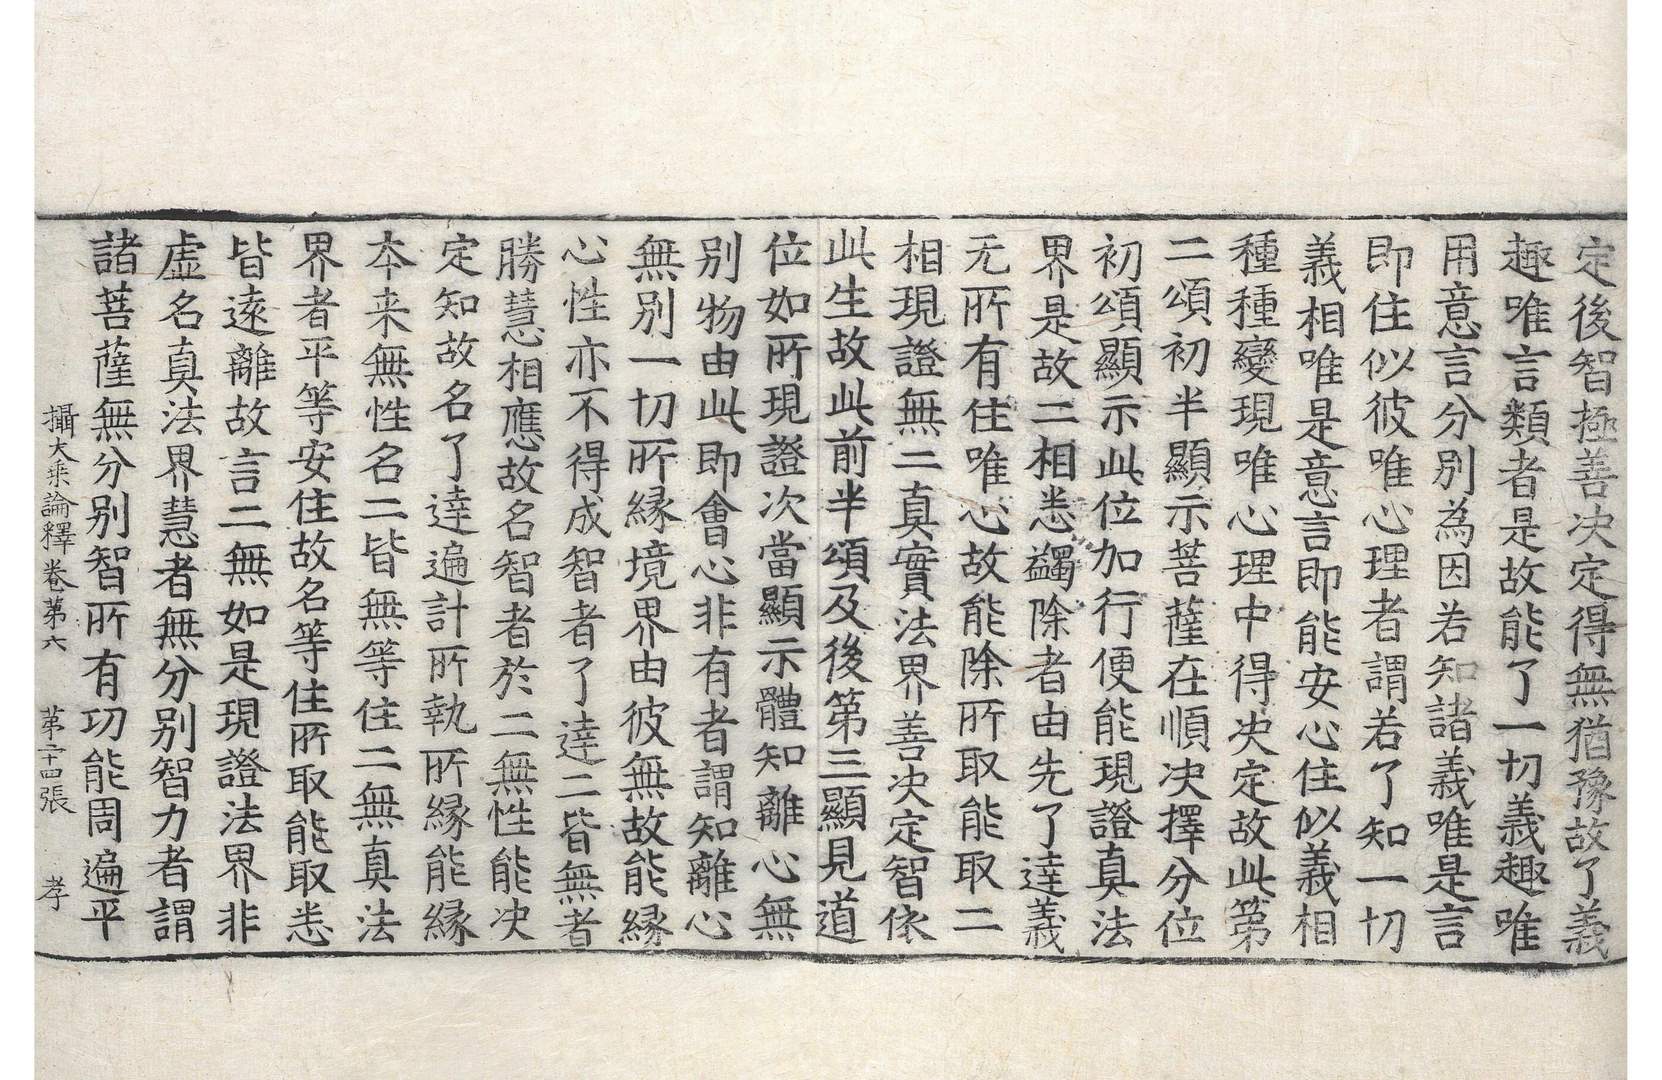 定後智極善决定得無猶豫故了義
趣唯言類者是故能了一切義趣唯
用意言分别為因若知諸義唯是言
即住似彼唯心理者謂若了知一切
義相唯是意言即能安心住似義相
種種變現唯心理中得决定故此第
二頌初半顯示菩薩在順决擇分位
初頌顯示此位加行便能現證真法
界是故二相悉蠲除者由先了達義
无所有住唯心故能除所取能取二
相現證無二真實法界善决定智依
此生故此前半頌及後第三顯見道
位如所現證次當顯示體知離心無
别物由此即會心非有者謂知離心
無别一切所縁境界由彼無故能縁
心性亦不得成智者了達二皆無者
勝慧相應故名智者於二無性能决
定知故名了達遍計所執所縁能縁
本来無性名二皆無等住二無真法
界者平等安住故名等住所取能取悉
皆遠離故言二無如是現證法界非
虚名真法界慧者無分别智力者謂
諸菩薩無分别智所有功能周遍平
攝大乘論釋卷第六　第二十四張　孝